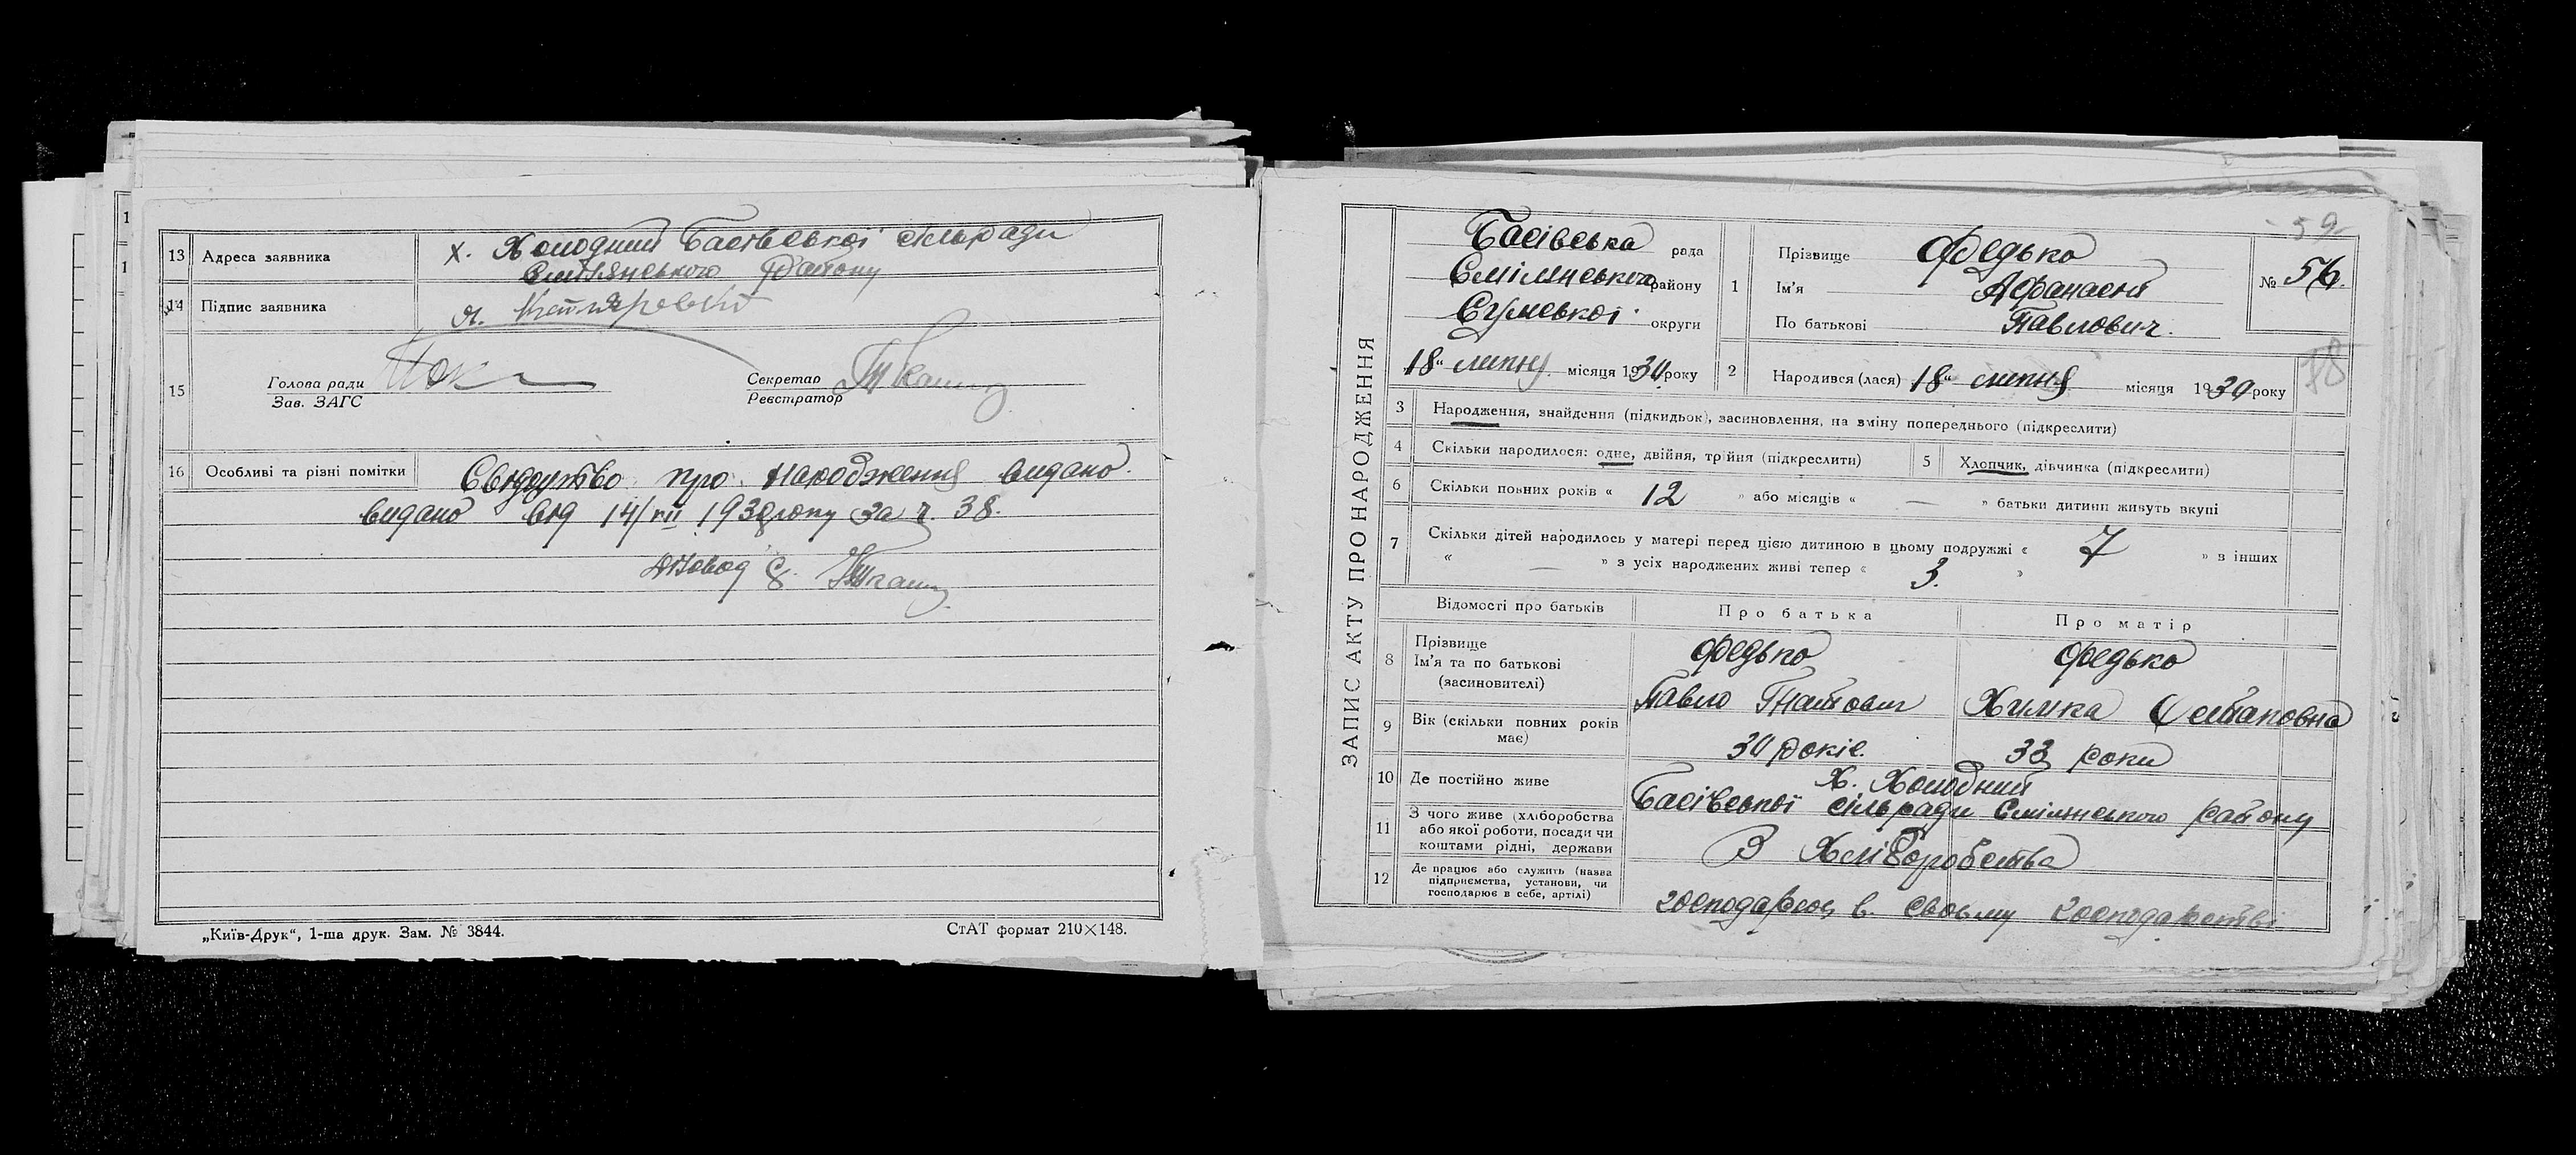 13 Адреса заявника х. Холодний Басівської сільради
Смілянського Району
14 Підпис заявника
15 Голова ради
Зав. ЗАГС
Секретар
Реєстратор
16 Особливі та різні помітки Свідоутво про народження видано
видано від 14/VII 1930 року за ч. 38.
„Київ-Друк“, 1-ша друк. Зам. № 3844.
СтАТ формат 210×148.
59
ЗАПИС АКТУ ПРО НАРОДЖЕННЯ
Басівська рада
Смілянського району
Сумської округи
18“ липня місяця 1930 року
1 Прізвище Федько
Ім'я Афанасий
По батькові Павлович.
№ 56.
2 Народився (лася) 18“ липня місяця 1930 року
78
3 Народження, знайдення (підкидьок), засиновлення, на зміну попереднього (підкреслити)
4 Скільки народилося: одне, двійня, трійня (підкреслити)
5 Хлопчик, дівчинка (підкреслити)
6 Скільки повних років « 12 » або місяців « — » батьки дитини живуть вкупі
7 Скільки дітей народилось у матері перед цією дитиною в цьому подружжі « 7 » в інших
« — » з усіх народжених живі тепер « 3. »
Відомості про батьків Про батька Про матір
8 Прізвище
Ім'я та по батькові
(засиновителі)
Федько
Павло Гнатович
Федько
Химка Остаповна
9 Вік (скільки повних років
має)
30 років.
33 роки
10 Де постійно живе Х. Холодний
Басівської сільради Смілянського району
11 З чого живе (хліборобства
або якої роботи, посади чи
коштами рідні, держави
З Хліборобства
12 Де працює або служить (назва
підприємства, установи, чи
господарює в себе, артілі)
господарює в своему господарстві